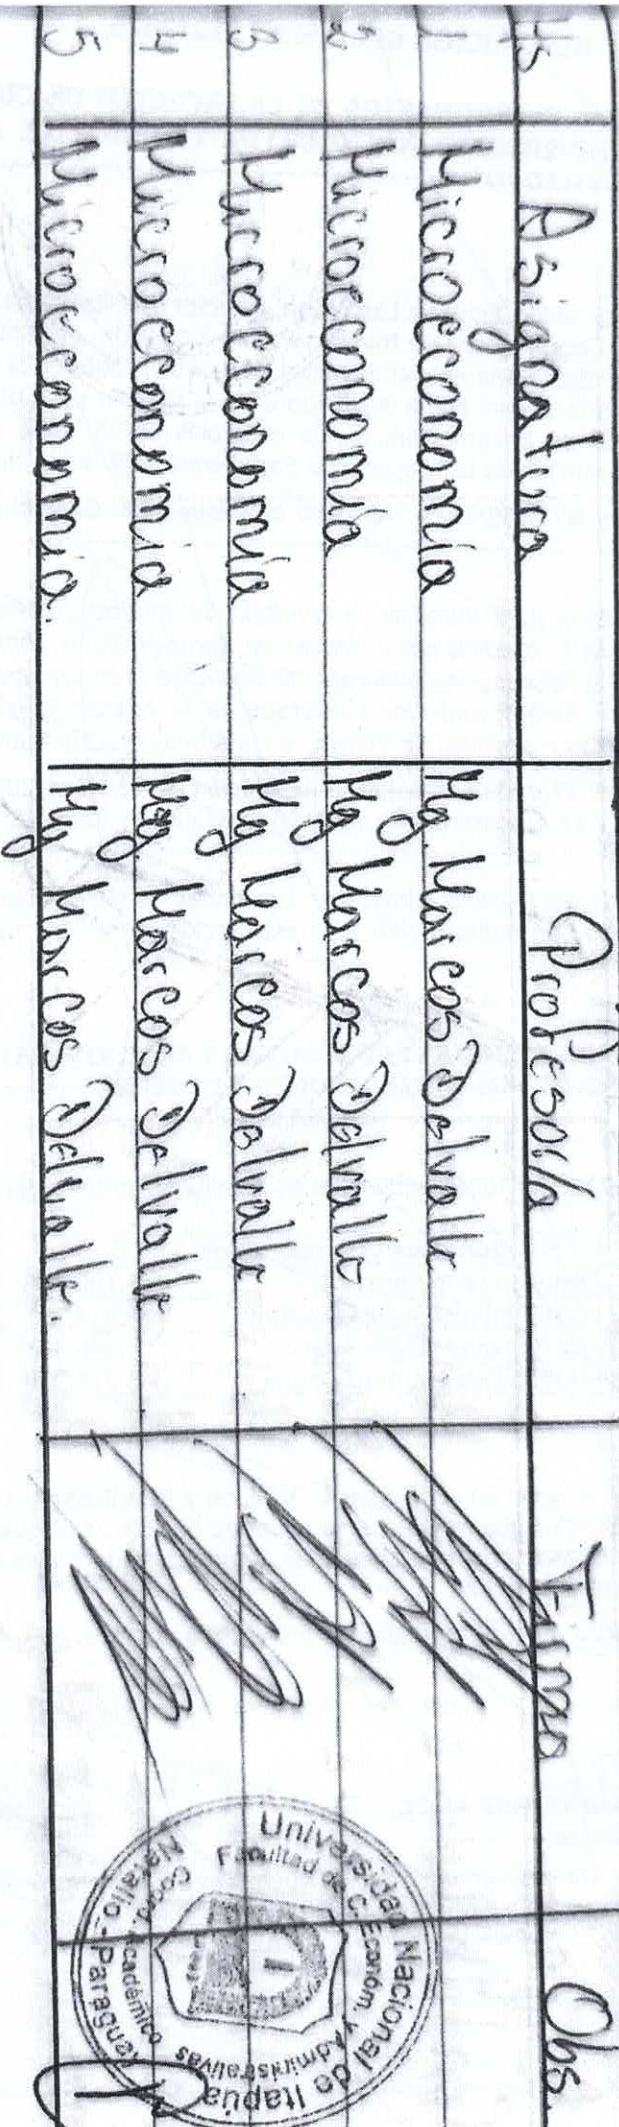 Hs Asignatura Profesor/a Firma Obs
1 Microeconomía Mg. Marcos Delvalle
2 Microeconomia Mg Marcos Delvalle
3 Microeconomía Mg Marcos Delvalle
4 Microeconomía Mg. Marcos Delvalle
5 Microeconomía. Mg Marcos Delvalle.
Universidad Nacional de Itapúa
Facultad de C. Económ. y Administrativas
Coord. Académico
Natalio - Paraguay